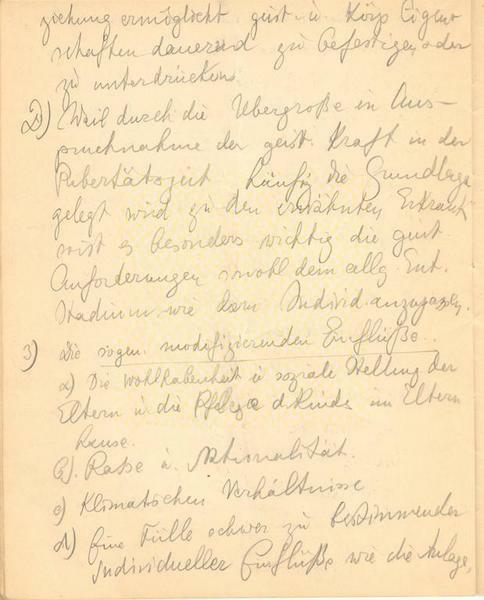 ziehung ermöglicht geist. u. Körp. Eigen-
schaften dauernd zu befestigen oder
zu unterdrücken.
2) Weil durch die Übergroße in Aus-
pruchnahme der geist. Kraft in der
Pubertätszeit häufig die Grundlage
gelegt wird zu den erwähnten Erkrank
ist es besonders wichtig die geist
Anforderungen sowohl dem allg. Ent.
Stadium wie dem Individ. anzupassen.
3) Die sogen. modifizierenden Einflüße.
a) Die Wohlhabenheit u. soziale Stellung der
Eltern u. die Pflege d. Kindes im Eltern
hause.
b). Raße u. Nationalität.
c) Klimatischen Verhältnisse
d) Eine Fülle schwer zu bestimmender
individueller Einflüße wie die Anlage,